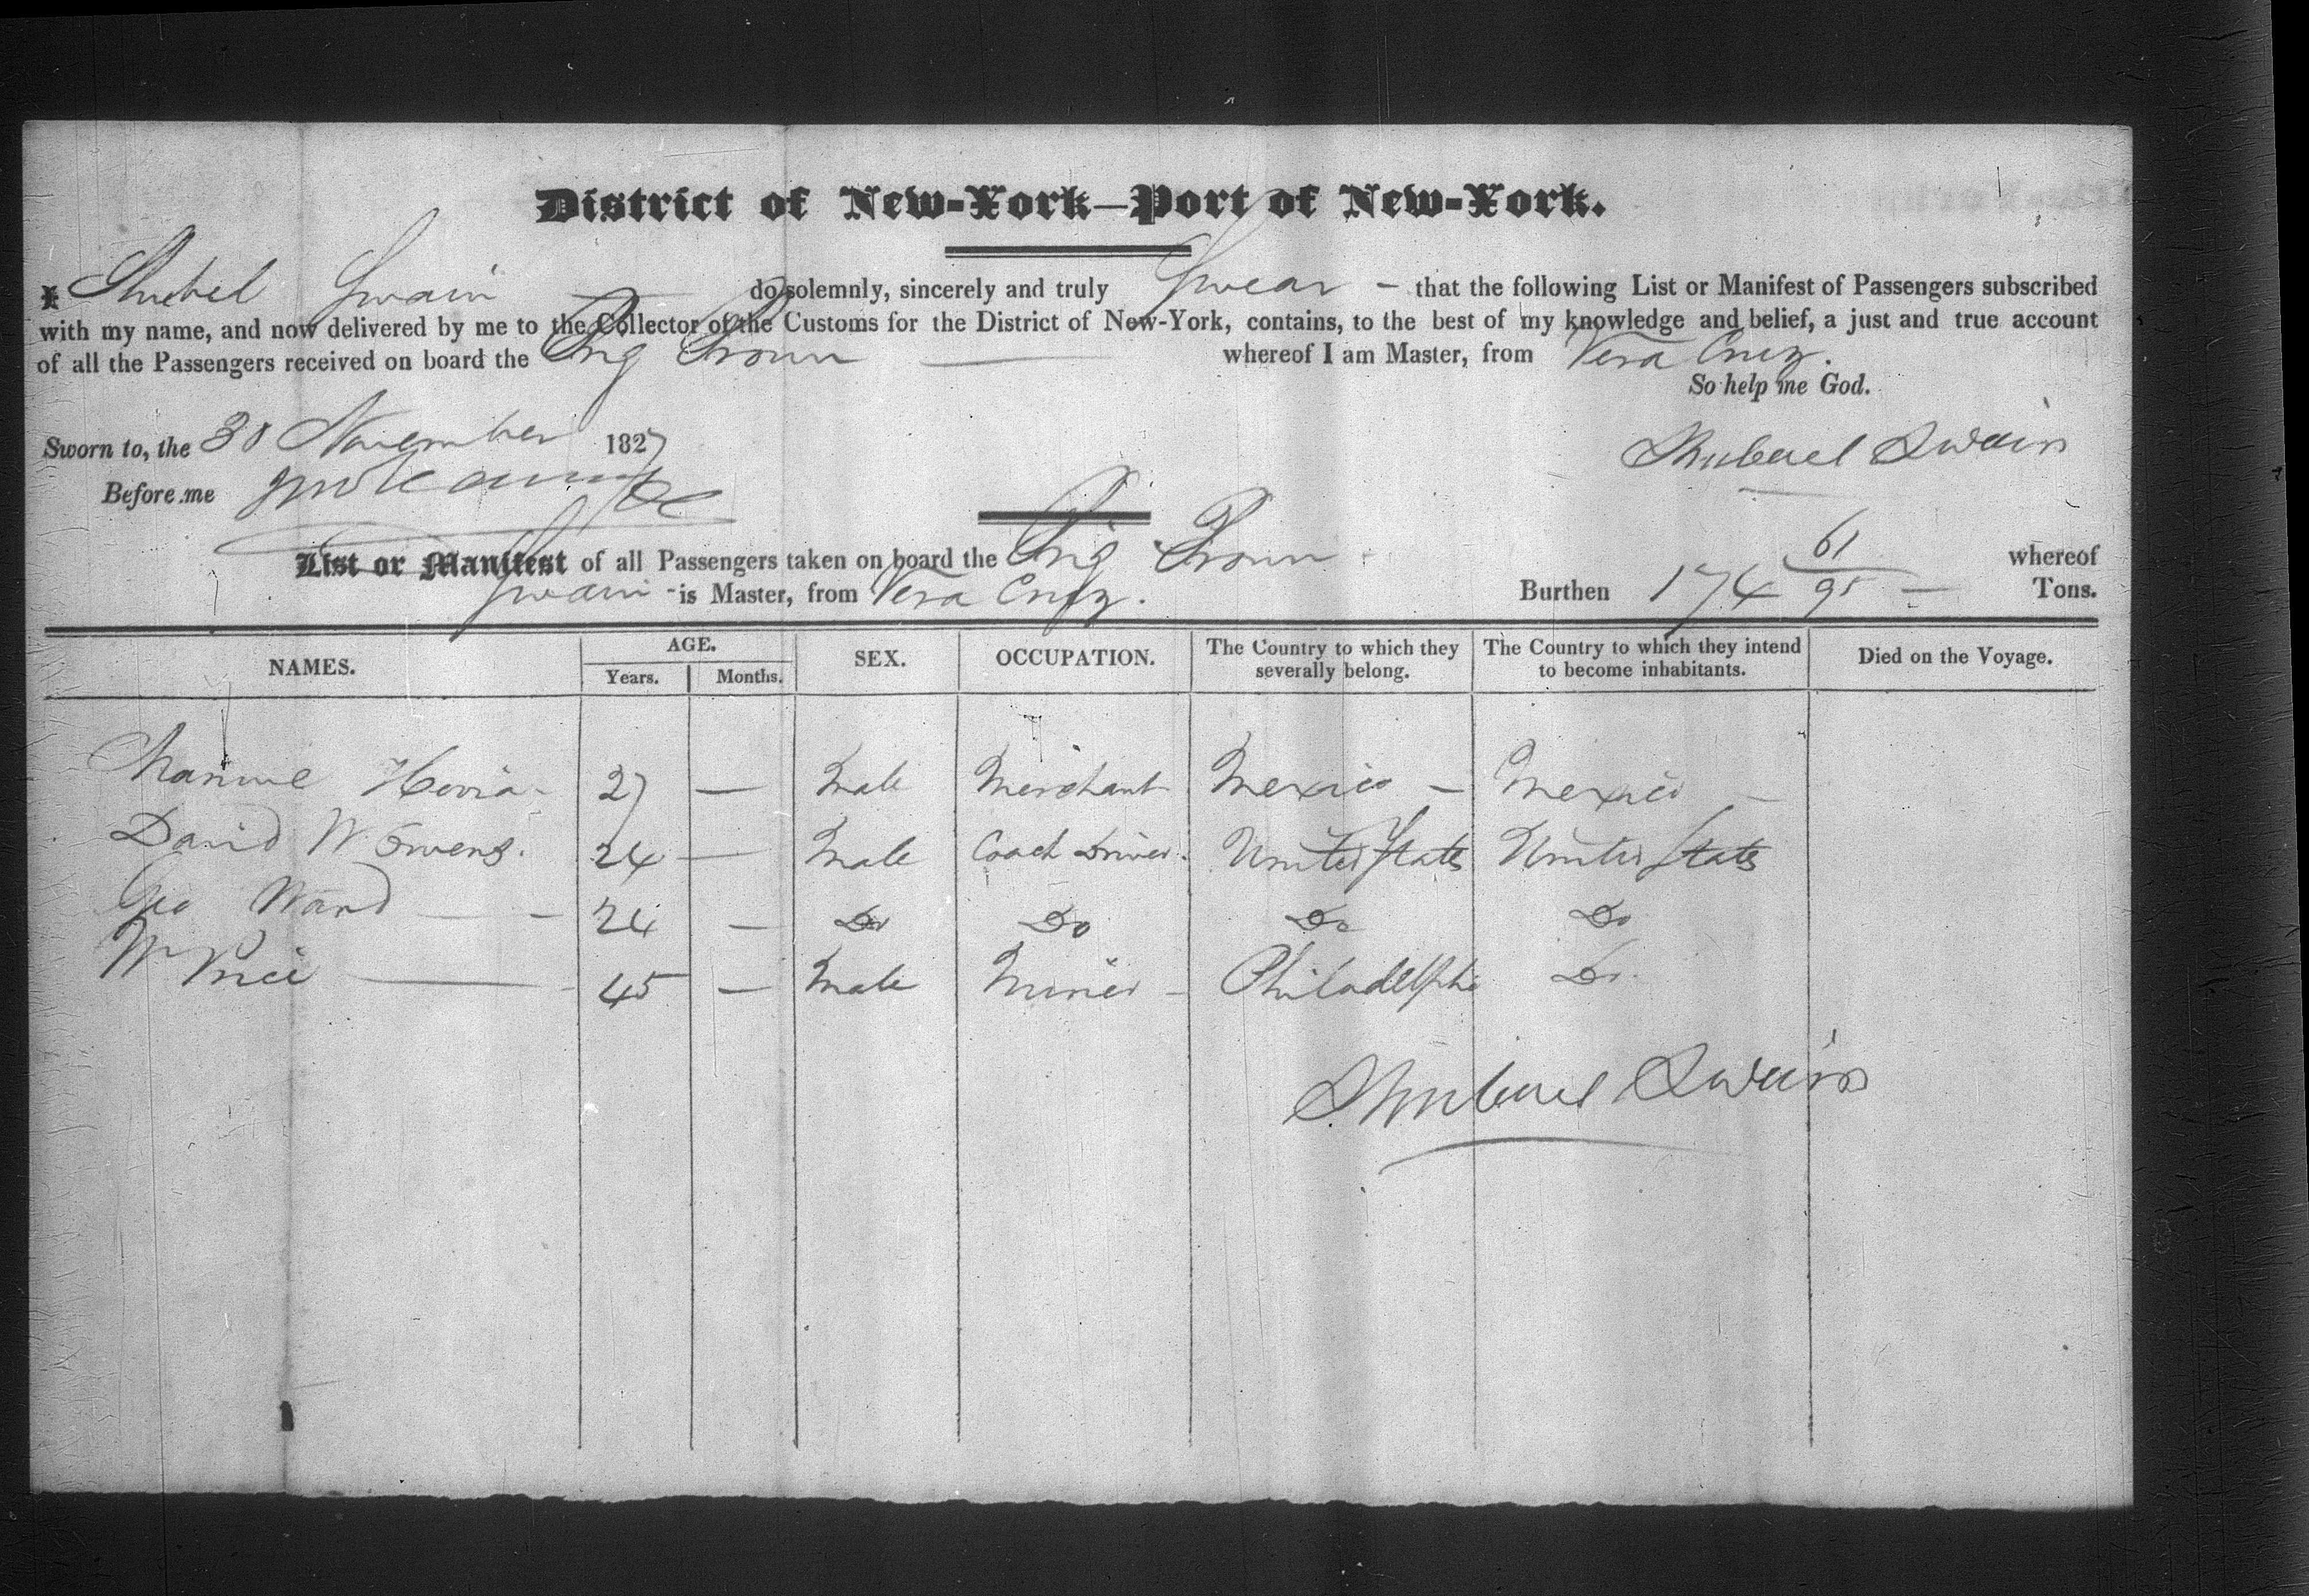 District of New-York—Port of New-York.
I Shubel Swain do solemnly, sincerely and truly Swear – that the following List or Manifest of Passengers subscribed
with my name, and now delivered by me to the Collector of the Customs for the District of New-York, contains, to the best of my knowledge and belief, a just and true account
of all the Passengers received on board the Brig whereof I am Master, from Vera Cruz.
So help me God.
Sworn to, the 30 November 1827
Shubael Swain
Before me
List or Manifest of all Passengers taken on board the Brig whereof
Swain - is Master, from Vera Cruz. Burthen 174 61/95 – Tons.
NAMES. AGE. Years. Months. SEX. OCCUPATION. The Country to which they severally belong. The Country to which they intend to become inhabitants. Died on the Voyage.
27 — Male Merchant Mexico – Mexico –
David W Owens. 24 — Male Coach Driver. United States United States
Geo Ward — – 24 — Do Do Do Do
Wm Price — 45 — Male Miner – Philadelphia Do
Shubael Swain